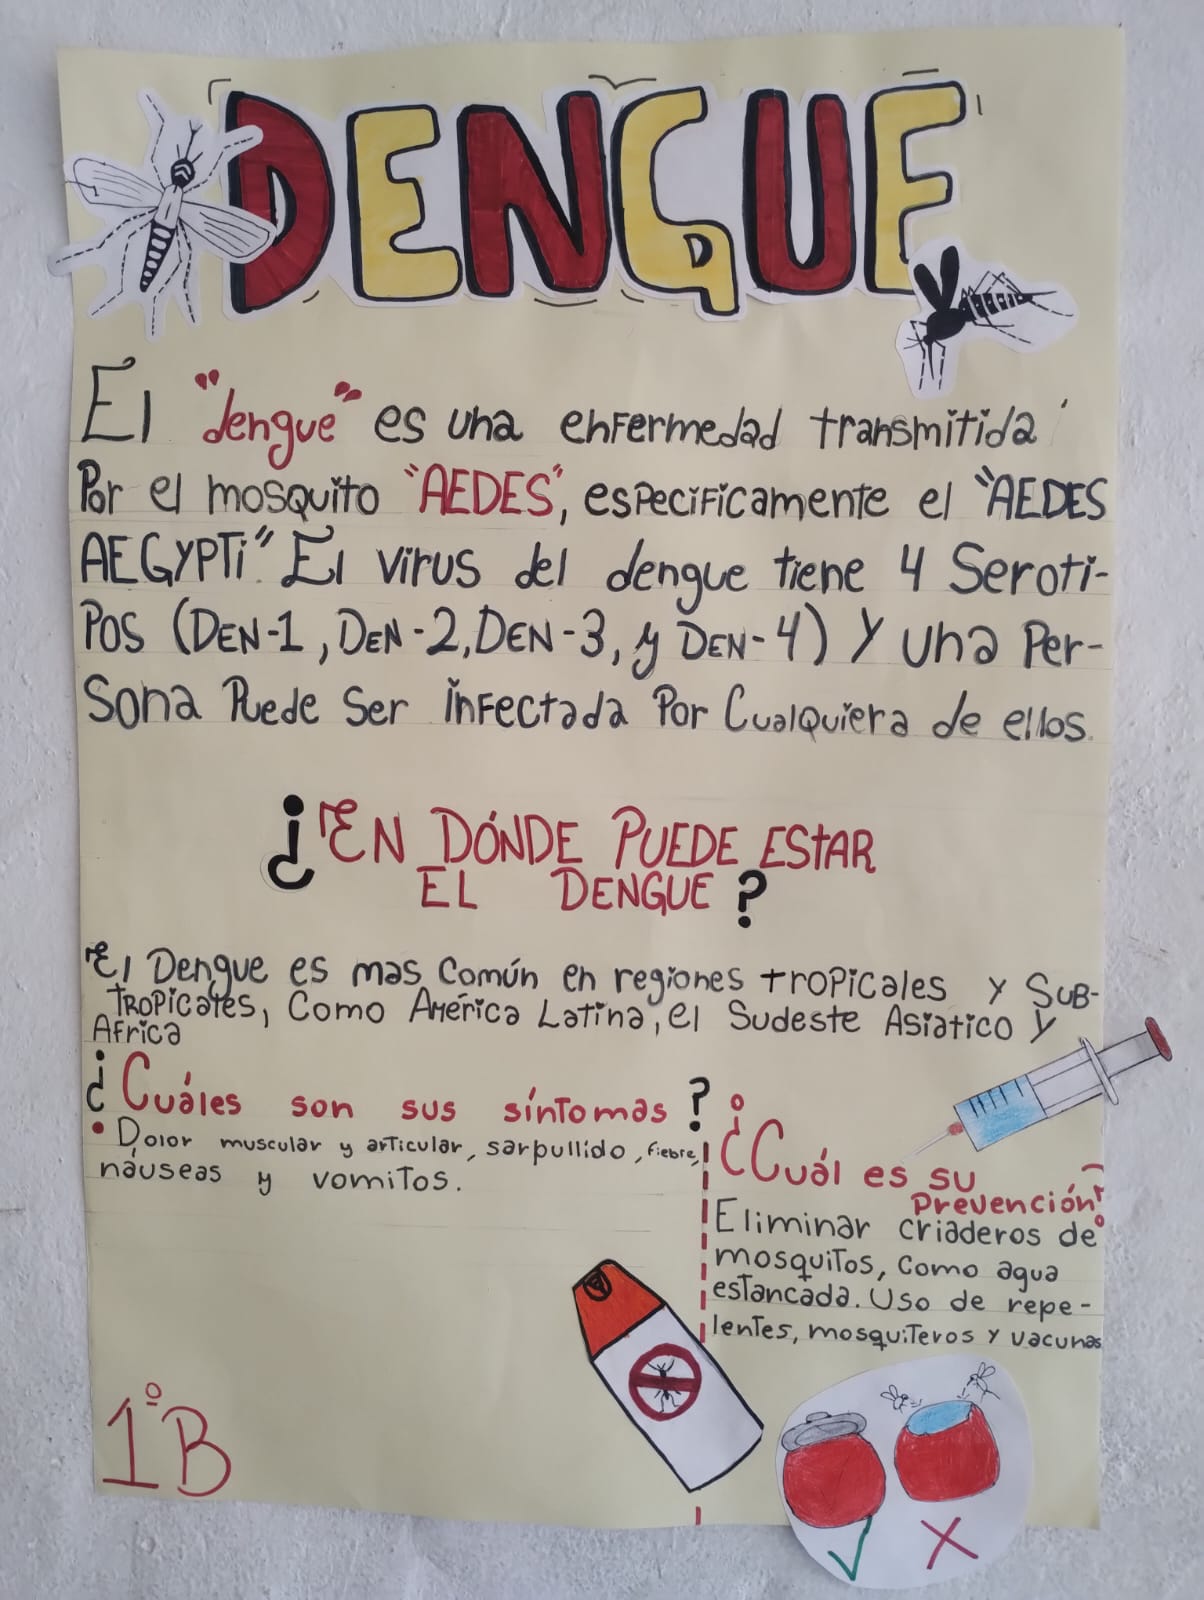 DENGUE
El "dengue" es una enfermedad transmitida
Por el mosquito "AEDES", especificamente el "AEDES
AEGYPTi". El virus del dengue tiene 4 Seroti-
Pos (DEN-1, DEN-2, DEN-3, y DEN-4) y una Per-
Sona Puede Ser infectada Por Cualquiera de ellos.
¿EN DÓNDE PUEDE ESTAR
EL DENGUE?
El Dengue es mas Común en regiones tropicales y SUB-
TROPicales, Como América Latina, el Sudeste Asiatico y
Africa
¿Cuáles son sus síntomas?
• Dolor muscular y articular, sarpullido, fiebre,
náuseas y vomitos.
¿Cuál es su
Prevención?
Eliminar criaderos de
mosquitos, como agua
estancada. Uso de repe-
lentes, mosquiteros y vacunas
1ºB